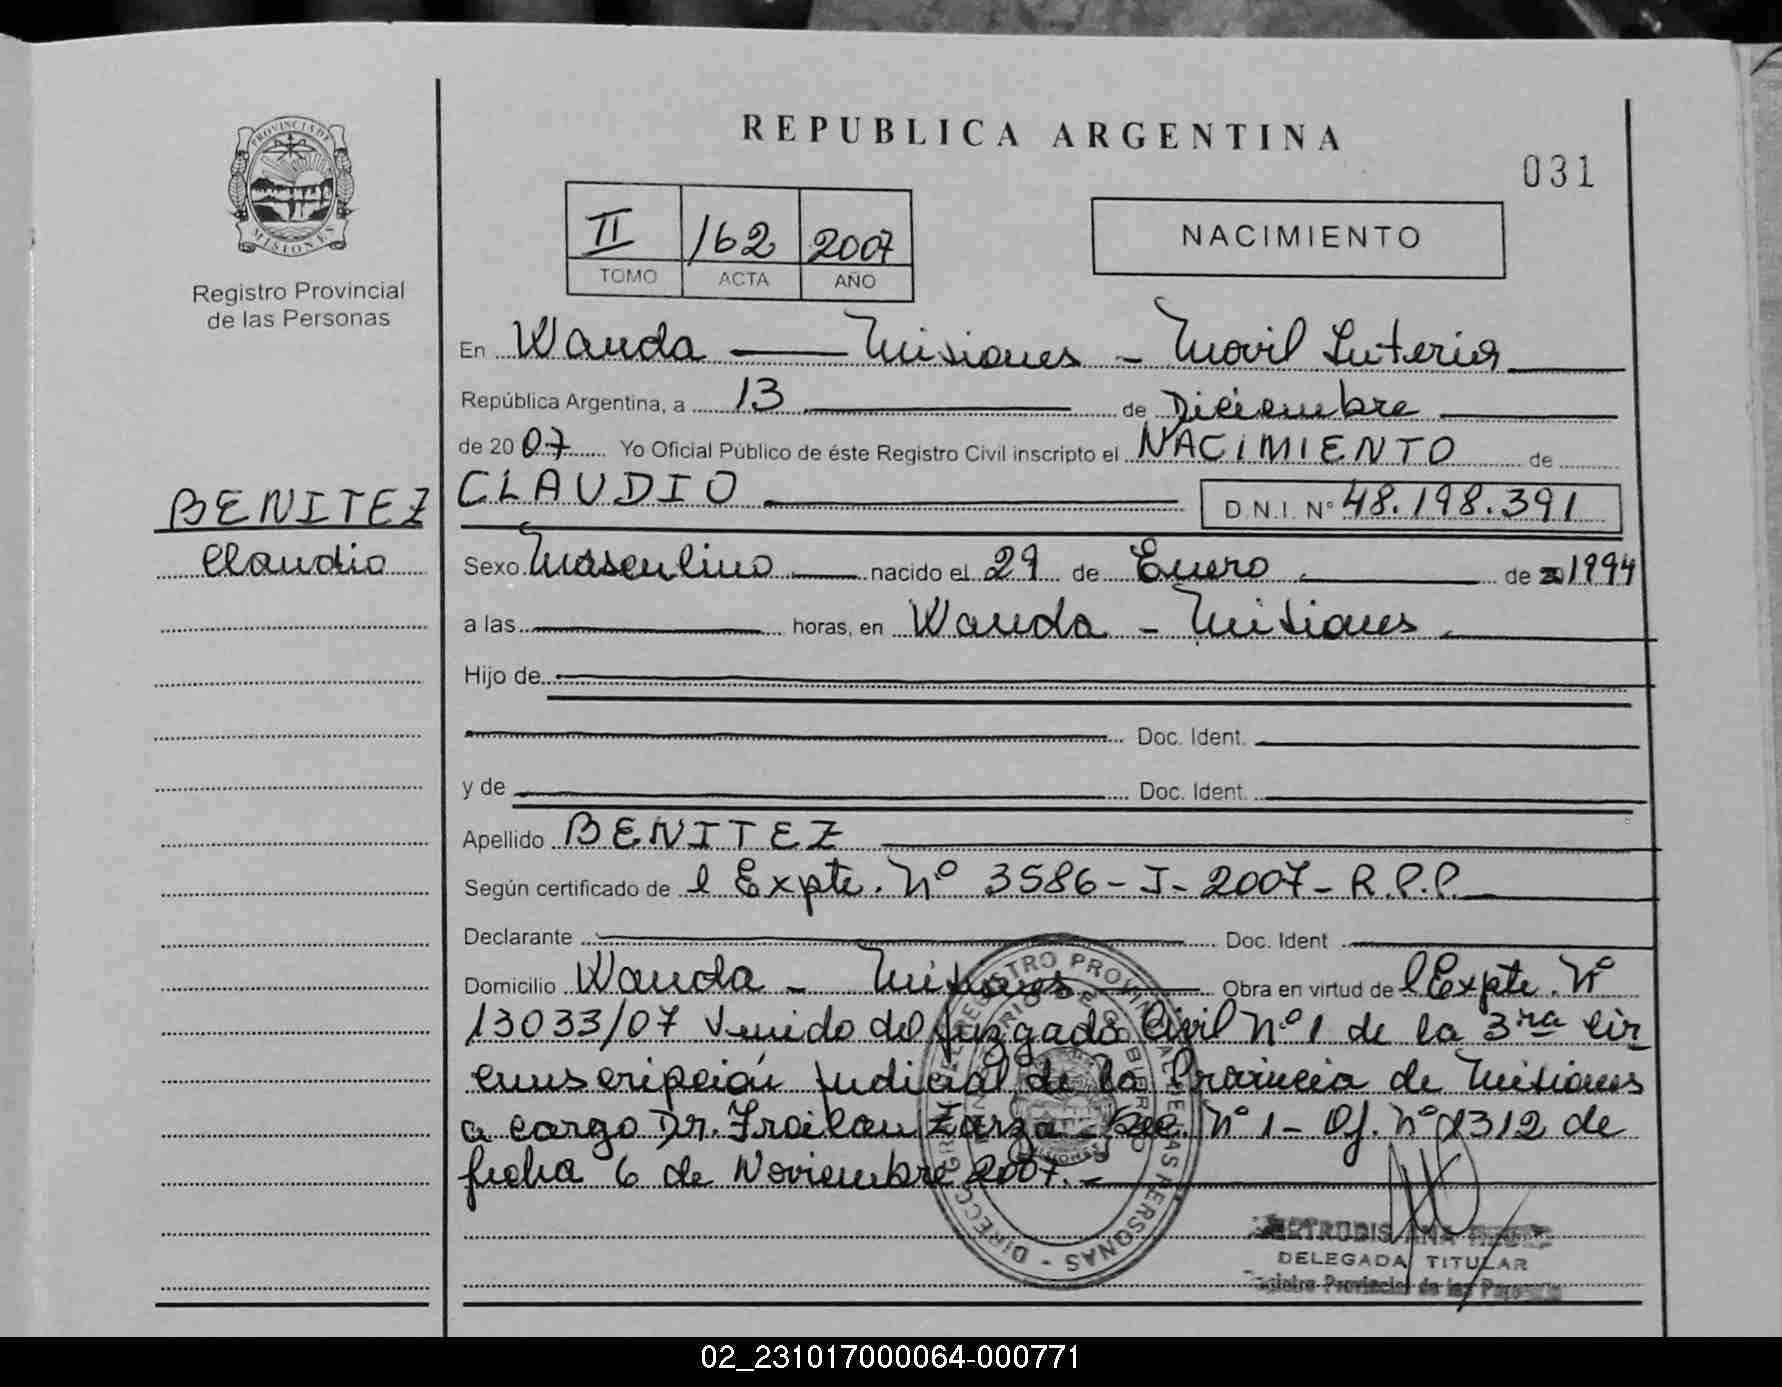 REPUBLICA ARGENTINA
031
PROVINCIA DE
MISIONES
Registro Provincial
de las Personas
II 162 2007
TOMO ACTA AÑO
NACIMIENTO
En Wanda — Misiones - Movil Interior
República Argentina, a 13 de Diciembre
de 2007 Yo Oficial Público de éste Registro Civil inscripto el NACIMIENTO de
BENITEZ
Claudio
CLAUDIO D.N.I. Nº 48.198.391
Sexo Masculino nacido el 29 de Enero de 1994
a las horas, en Wanda - Misiones
Hijo de
Doc. Ident.
y de Doc. Ident.
Apellido BENITEZ
Según certificado de l Expte. Nº 3586-I-2007-R.P.P.
Declarante Doc. Ident
Domicilio Wanda - Misiones Obra en virtud de l Expte. Nº
13033/07 venido del Juzgado Civil Nº 1 de la 3ra Cir
cunscripción Judicial de la Provincia de Misiones
a cargo Dr. Froilan Zarza - Sec. Nº 1 - Of. Nº 2312 de
fecha 6 de Noviembre 2007.-
ANA
DELEGADA TITULAR
Registro Provincial de las Personas
02_231017000064-000771